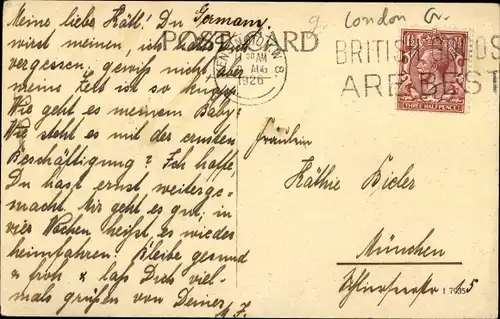 Meine liebe Käthl! Du
Germany.
wirst meinen, ich
vergessen. gewiß nicht, aber
meine Zeit ist so knapp.
Wie geht es meinem Baby?
Wie steht es mit der ernsten
Beschäftigung? Ich hoffe,
Du hast ernst weiterge-
macht. Mir geht es gut; in
vier Wochen heißt es wieder
heimfahren. Bleibe gesund
froh & laß Dich viel-
mals grüßen von Deiner
POST CARD
KENSINGTON W8
AM
AUG
1926
London
BRITISH GOODS
ARE BEST
THREE HALFPENCE
Fräulein
Käthie Bieler
München
15